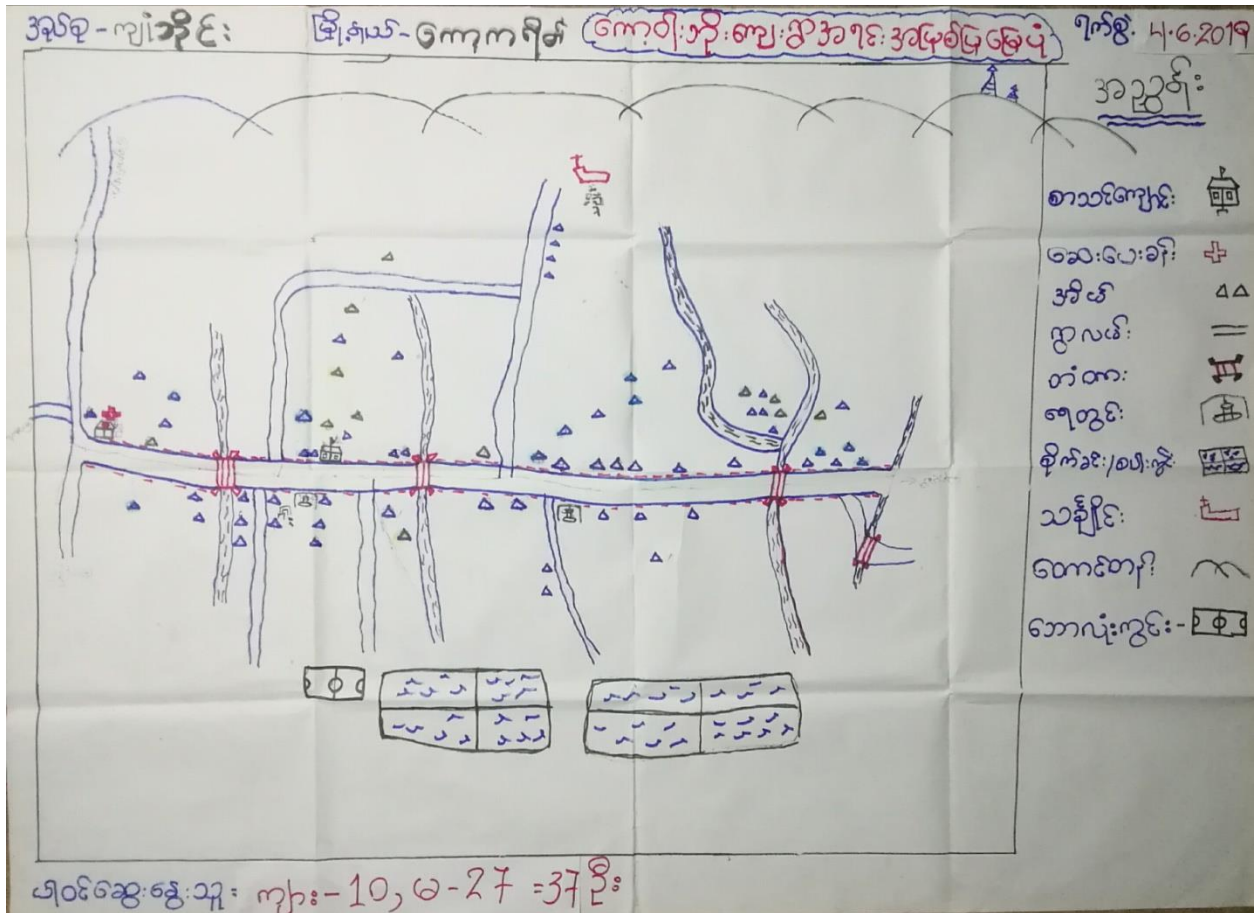 အုပ်စု - ကျုံဘိုင်း မြို့နယ် - ကော့ကရိတ် ကော့ဝါးဘိုးကျေးရွာအရင်းအမြစ်ပြမြေပုံ ရက်စွဲ. 4.6.2019
အညွှန်း
စာသင်ကျောင်း
ဆေးပေးခန်း
အိမ်
ရွာလမ်း
တံတား
ရေတွင်း
စိုက်ခင်း/
သင်္ချိုင်း
တောင်တန်း
ဘောလုံးကွင်း -
ပါဝင်ဆွေးနွေးသူ ကျား - 10, မ - 27 = 37 ဦး